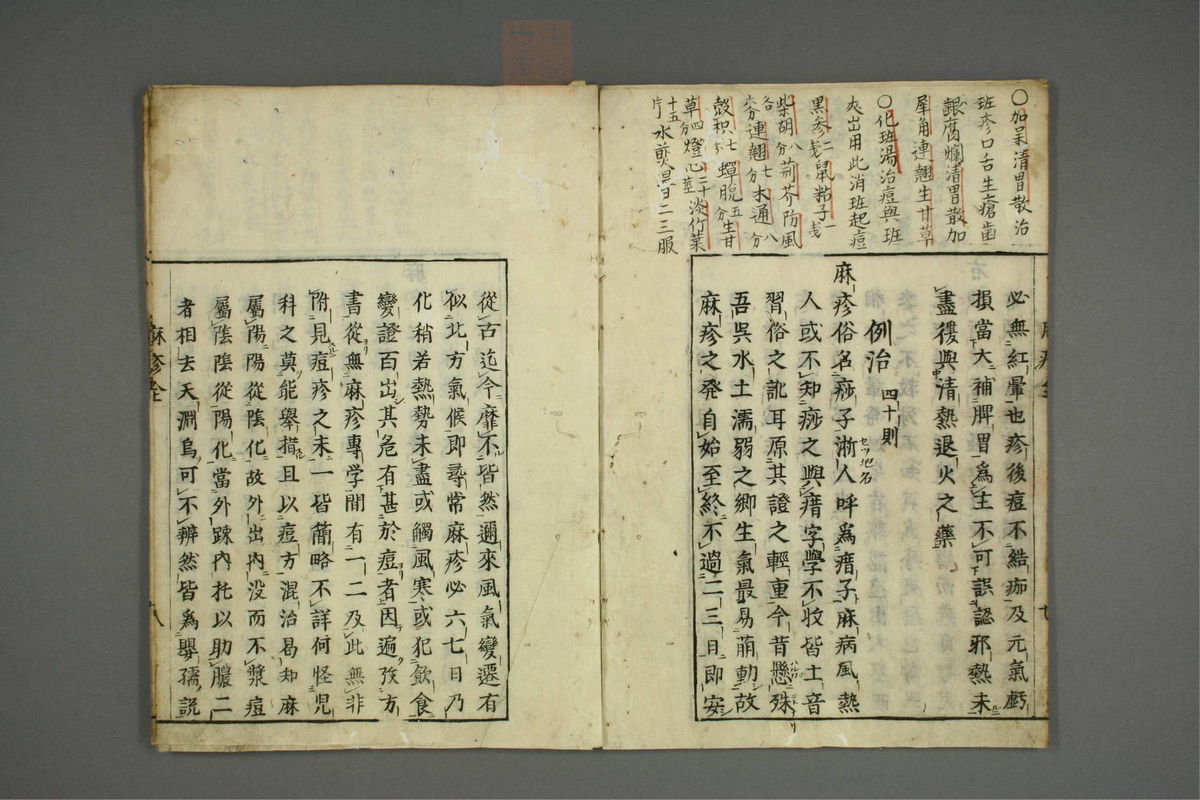 ○加呆清胃散治
班疹口舌生瘡歯
齦腐爛清胃散加
犀角連翹生甘草
○化班湯治痘與班
夾出用此消班起痘
黒参二戔鼠粘子一戔
柴胡八分荊芥防風
各六分連翹七分木通八分
殻积七分蟬脱五分生甘
草四分燈心二十莖淡竹葉
十五片水煎温日二三服
必無紅暈也疹後痘不結痂及元氣虧
損當大補脾胃爲主不可誤認邪熱未
盡復與清熱退火之藥
例治 四十則
麻疹俗名痧子浙人呼爲瘄子麻病風熱
人或不知痧之與瘄字學不收皆土音
習俗之訛耳原其證之輕重今昔懸殊
吾吳水土濡弱之卿生氣最易萠動故
麻疹之発自始至終不過二三日即安
從古迄今靡不皆然邇來風氣變遷有
似北方氣候即尋常麻疹必六七日乃
化稍若熱勢未盡或觸風寒或犯飲食
變證百出其危有甚於痘者因遍攷方
書從無麻疹專学間有一二及此無非
附見痘疹之末一皆簡略不詳何怪児
科之莫能舉措且以痘方混治易知麻
屬陽陽從陰化故外出內没而不漿痘
屬陰陰從陽化當外踈內托以助膿二
者相去天淵烏可不辨然皆爲嬰孺説
麻疹全
八